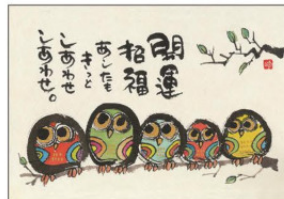 開運
招福
あしたも
きっと
しあわせ
しあわせ。